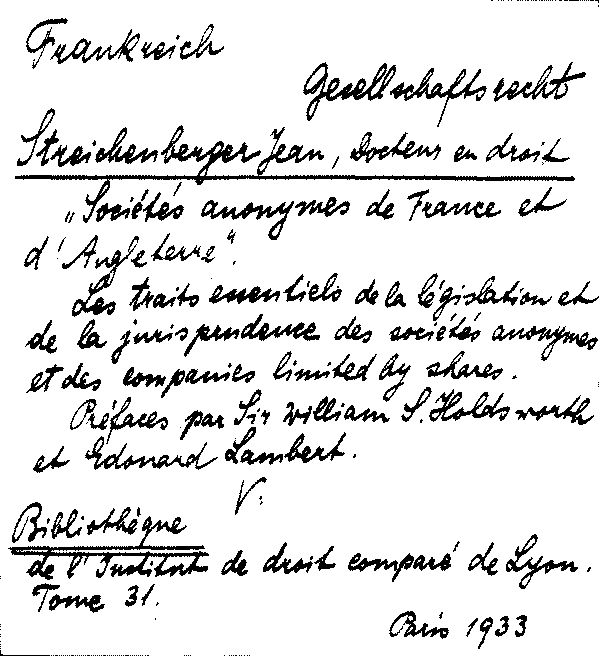 Frankreich
Gesellschaftsrecht
Streichenberger Jean, Docteur en droit
„Sociétés anonymes de France et
d'Angleterre".
Les traits essentiels de la législation et
de la jurisprudence des sociétés anonymes
et des companies limited by shares.
Préfaces par Sir William S. Holdsworth
et Edouard Lambert.
V:
Bibliothèque
de l'Institut de droit comparé de Lyon.
Tome 31.
Paris 1933